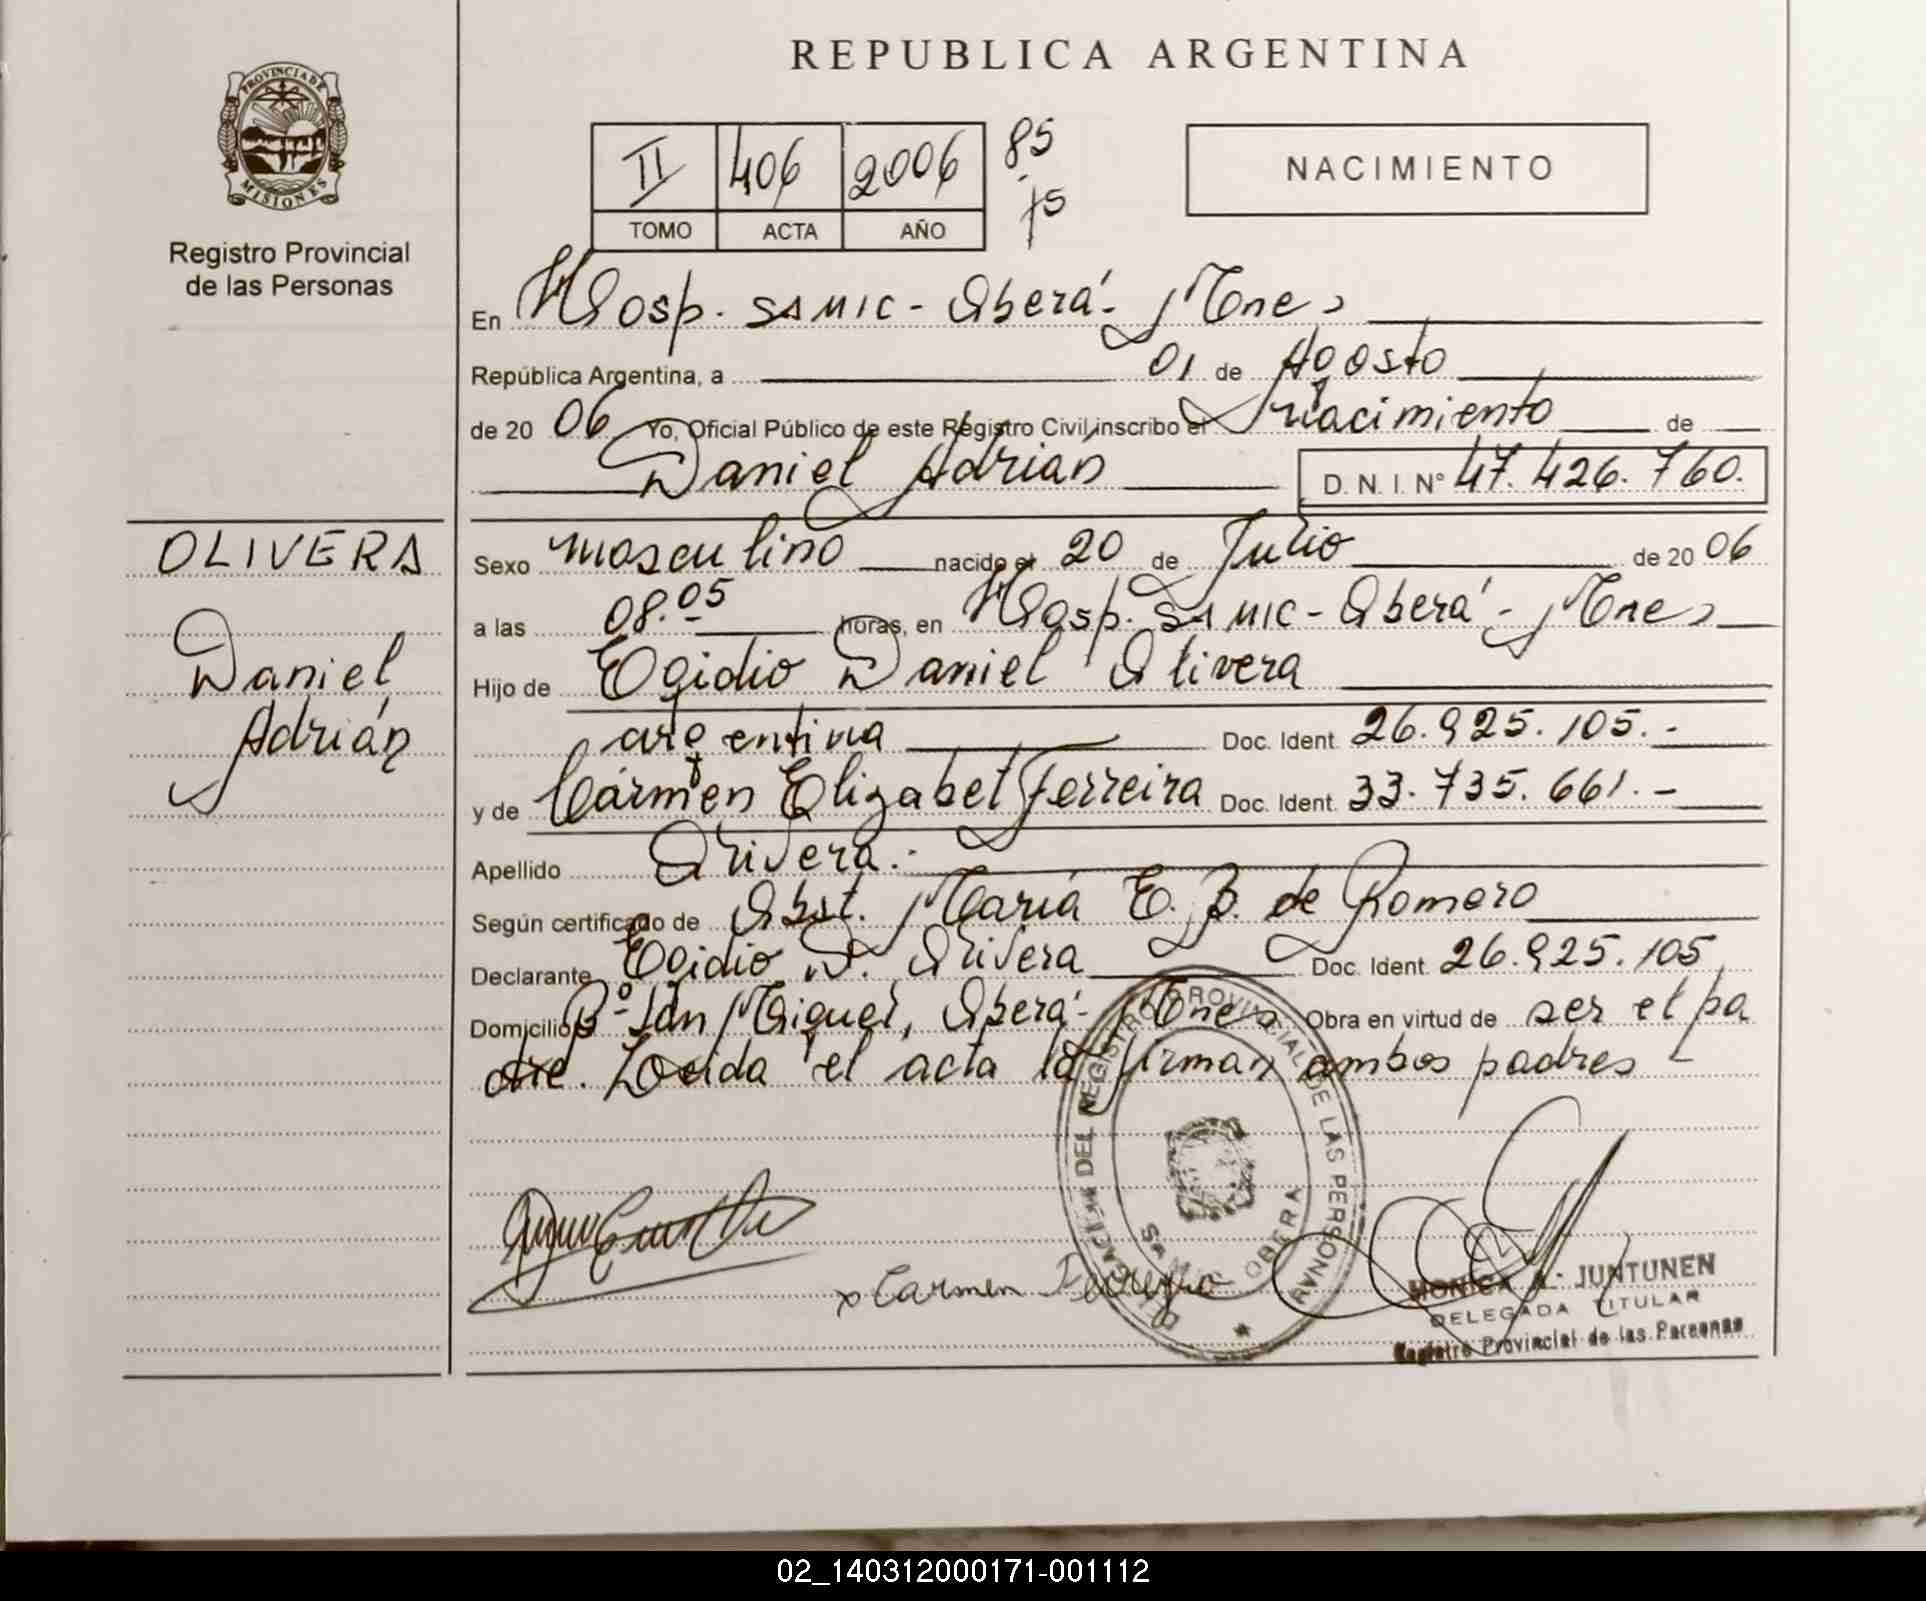 REPUBLICA ARGENTINA
PROVINCIA DE MISIONES
Registro Provincial
de las Personas
II 406 2006 85
TOMO ACTA AÑO 75
NACIMIENTO
En Hosp. SAMIC - Oberá - Mnes
República Argentina, a 01 de Agosto
de 20 06 Yo, Oficial Público de este Registro Civil inscribo el Nacimiento de
Daniel Adrián D. N. I. N° 47.426.760.
OLIVERA
Daniel
Adrián
Sexo masculino nacido el 20 de Julio de 20 06
a las 08.05 horas, en Hosp. SAMIC - Oberá - Mnes
Hijo de Egidio Daniel Olivera
argentina Doc. Ident. 26.925.105.-
y de Cármen Elizabet Ferreira Doc. Ident. 33.735.661.-
Apellido Olivera.-
Según certificado de Obst. María E. B. de Romero
Declarante Egidio D. Olivera Doc. Ident. 26.925.105
Domicilio B° San Miguel, Oberá - Mnes Obra en virtud de ser el pa
dre. Leida el acta la firman ambos padres
DEL REGISTRO PROVINCIAL DE LAS PERSONAS
SAMIC OBERA
x Carmen Ferreyra
MONICA A. JUNTUNEN
DELEGADA TITULAR
Registro Provincial de las Personas
02_140312000171-001112